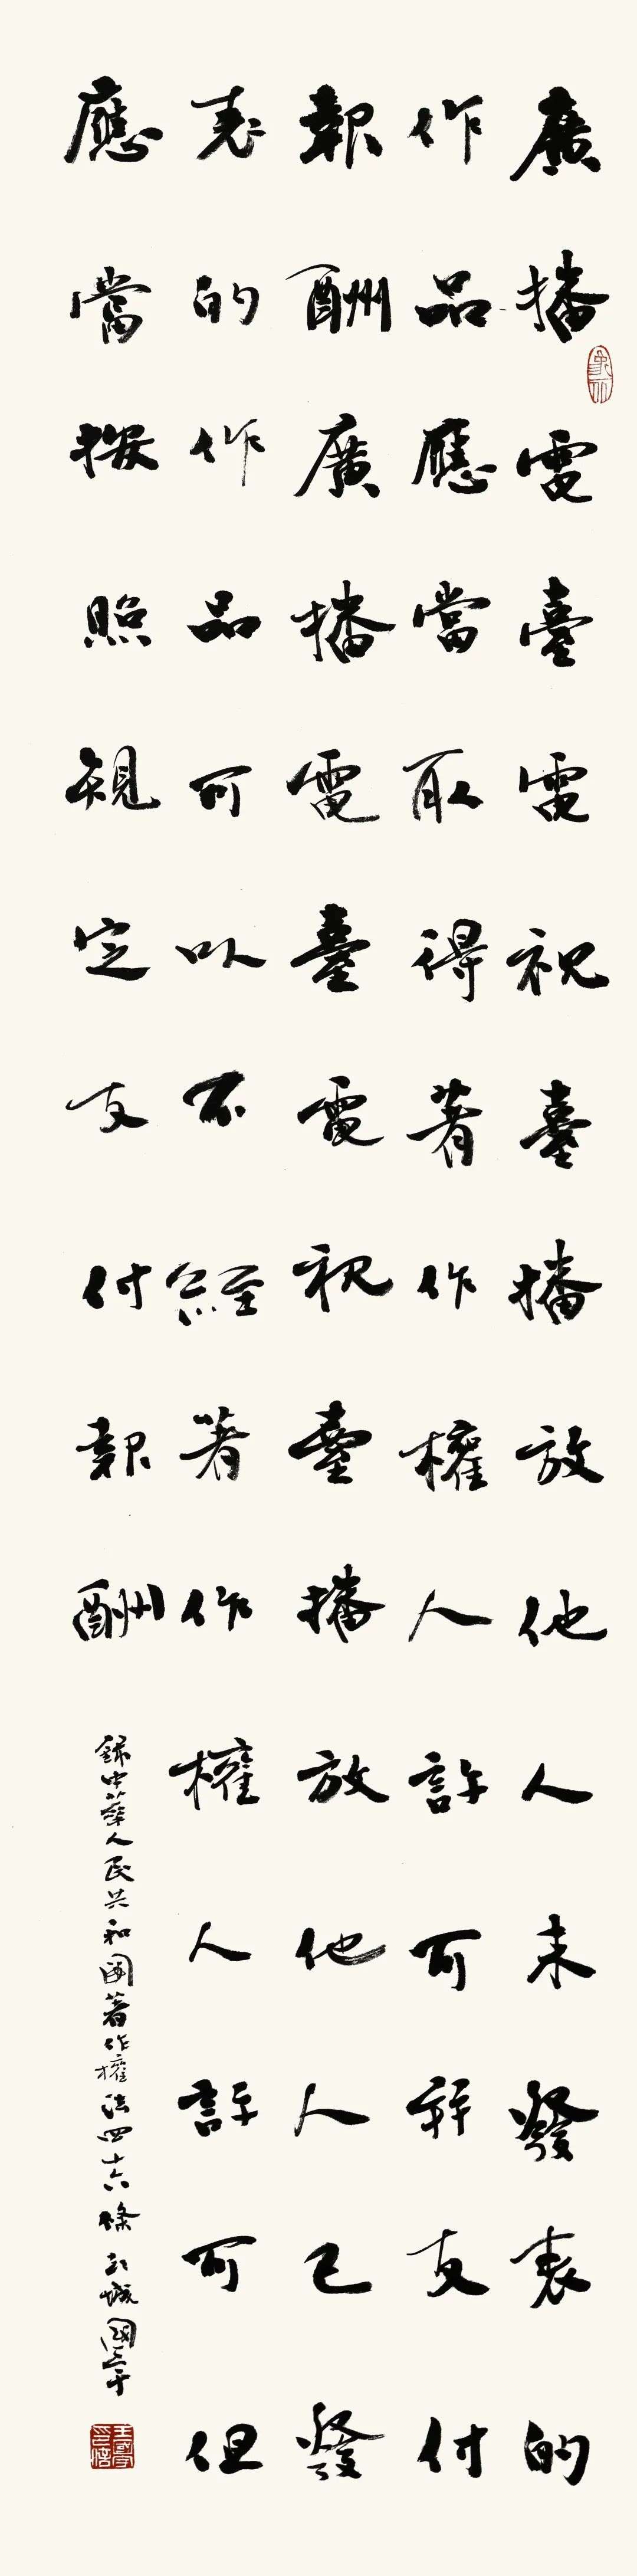 廣播電臺電視臺播放他人未發表的
作品應當取得著作權人許可并支付
報酬廣播電臺電視臺播放他人已發
表的作品可以不經著作權人許可但
應當按照規定支付報酬
錄中華人民共和國著作權法四十六條